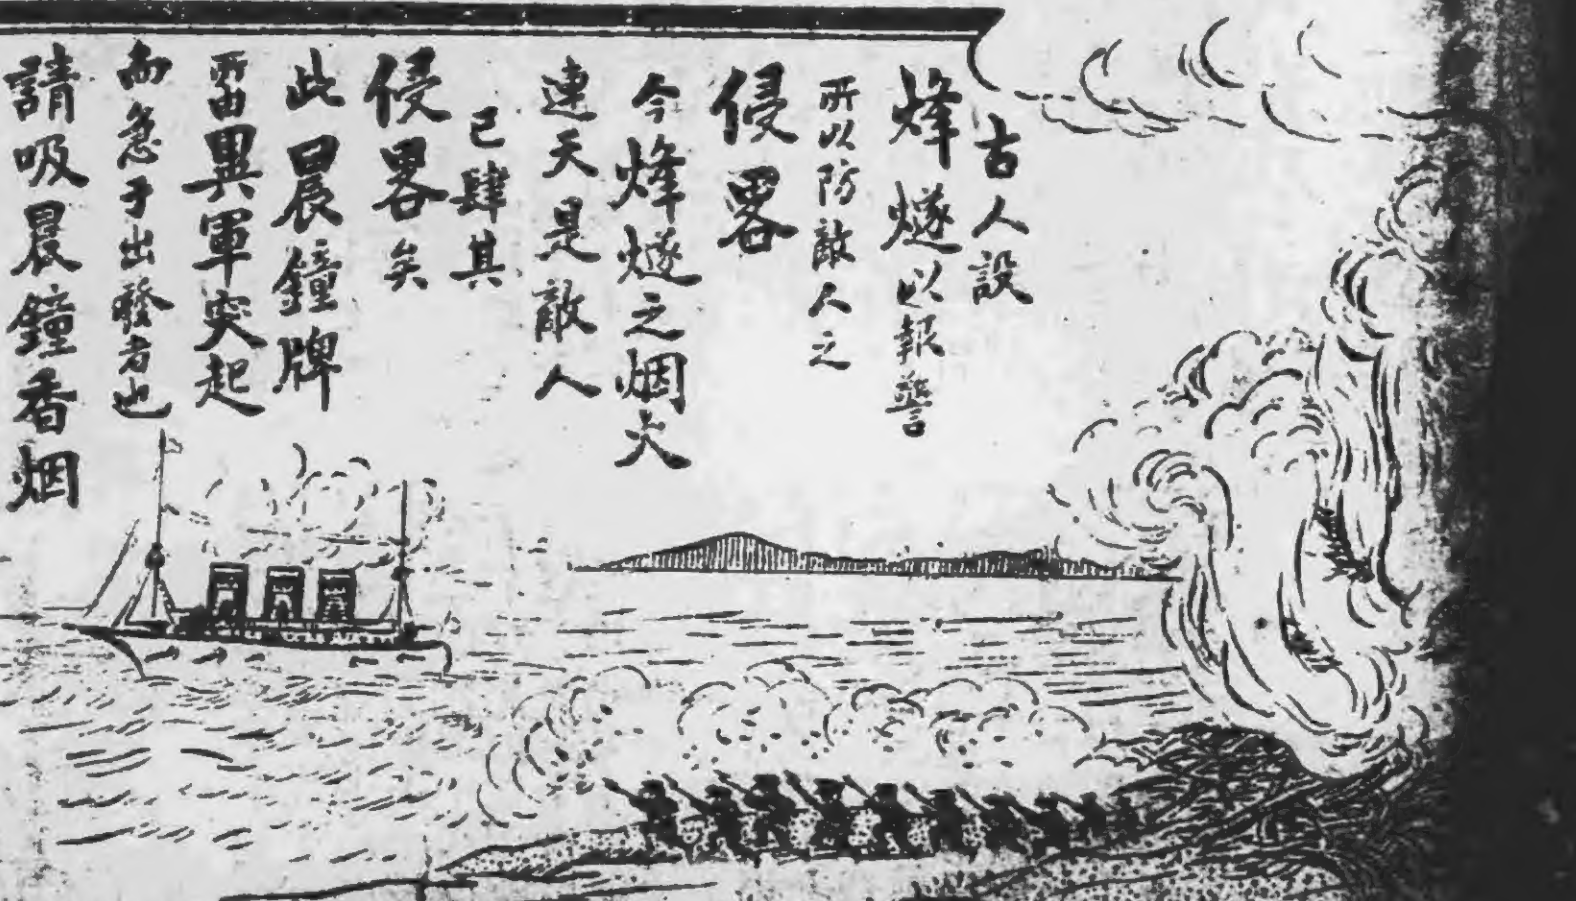 古人設
烽燧以報警
所以防敵人之
侵畧
今烽燧之烟火
連天是敵人
已肆其
侵畧矣
此晨鐘牌
所由異軍突起
而急于出發者也
請吸晨鐘香烟